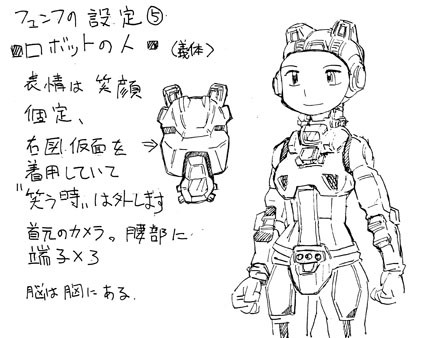 フュンフの設定⑤
ロボットの人 (義体)
表情は笑顔
固定、
右図仮面を
着用していて
"笑う時"は外します
首元のカメラ。腰部に
端子×3
脳は胸にある.